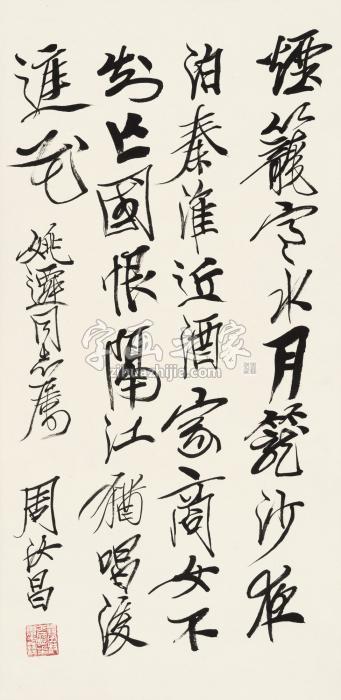 煙籠寒水月籠沙夜
泊秦淮近酒家商女不
知亡國恨隔江猶唱後
庭花
姚遷同志屬
周汝昌
字画之家
zihuazhijia.com